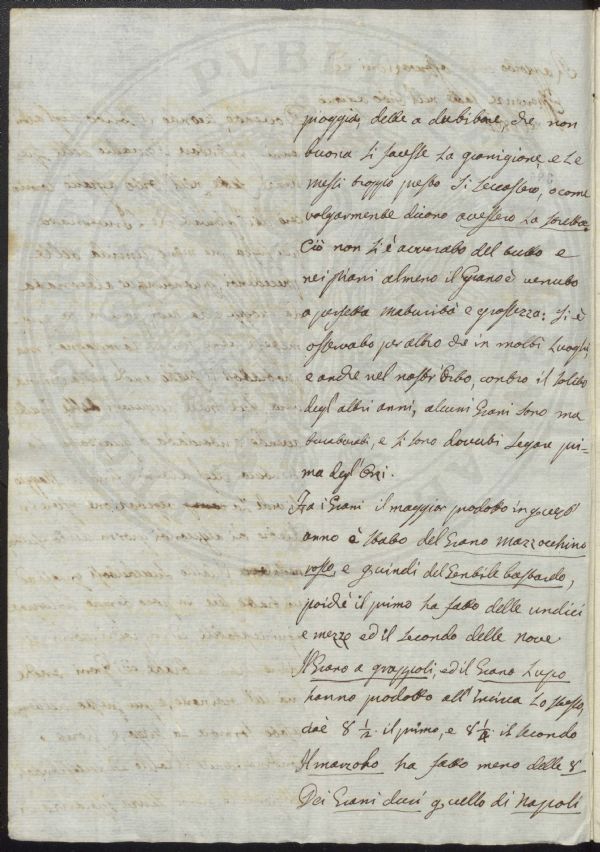 pioggia, dette a dubitare che non
buona si facesse la granigione, e le
messi troppo presto si seccassero, o come
volgarmente dicono avessero la stretta.
Ciò non si è avverato del tutto e
nei piani almeno il Grano è venuto
a perfetta maturità e grossezza: si è
osservato per altro che in molti luoghi,
e anche nel nostr'Orto, contro il solito
degl'altri anni, alcuni Grani sono ma
turati, e si sono dovuti segare pri-
ma degl'Orzi.
Fra i Grani il maggior prodotto in quest'
anno è stato del Grano Mazzocchino
rosso, e quindi del Gentile bastardo,
poichè il primo ha fatto delle undici
e mezzo ed il secondo delle nove
Il Grano a grappoli, ed il Grano Lupo
hanno prodotto all'incirca lo stesso,
cioè 8 1/2 il primo, e 8 1/4 il secondo
Il marzolo ha fatto meno delle 8
Dei Grani duri quello di Napoli